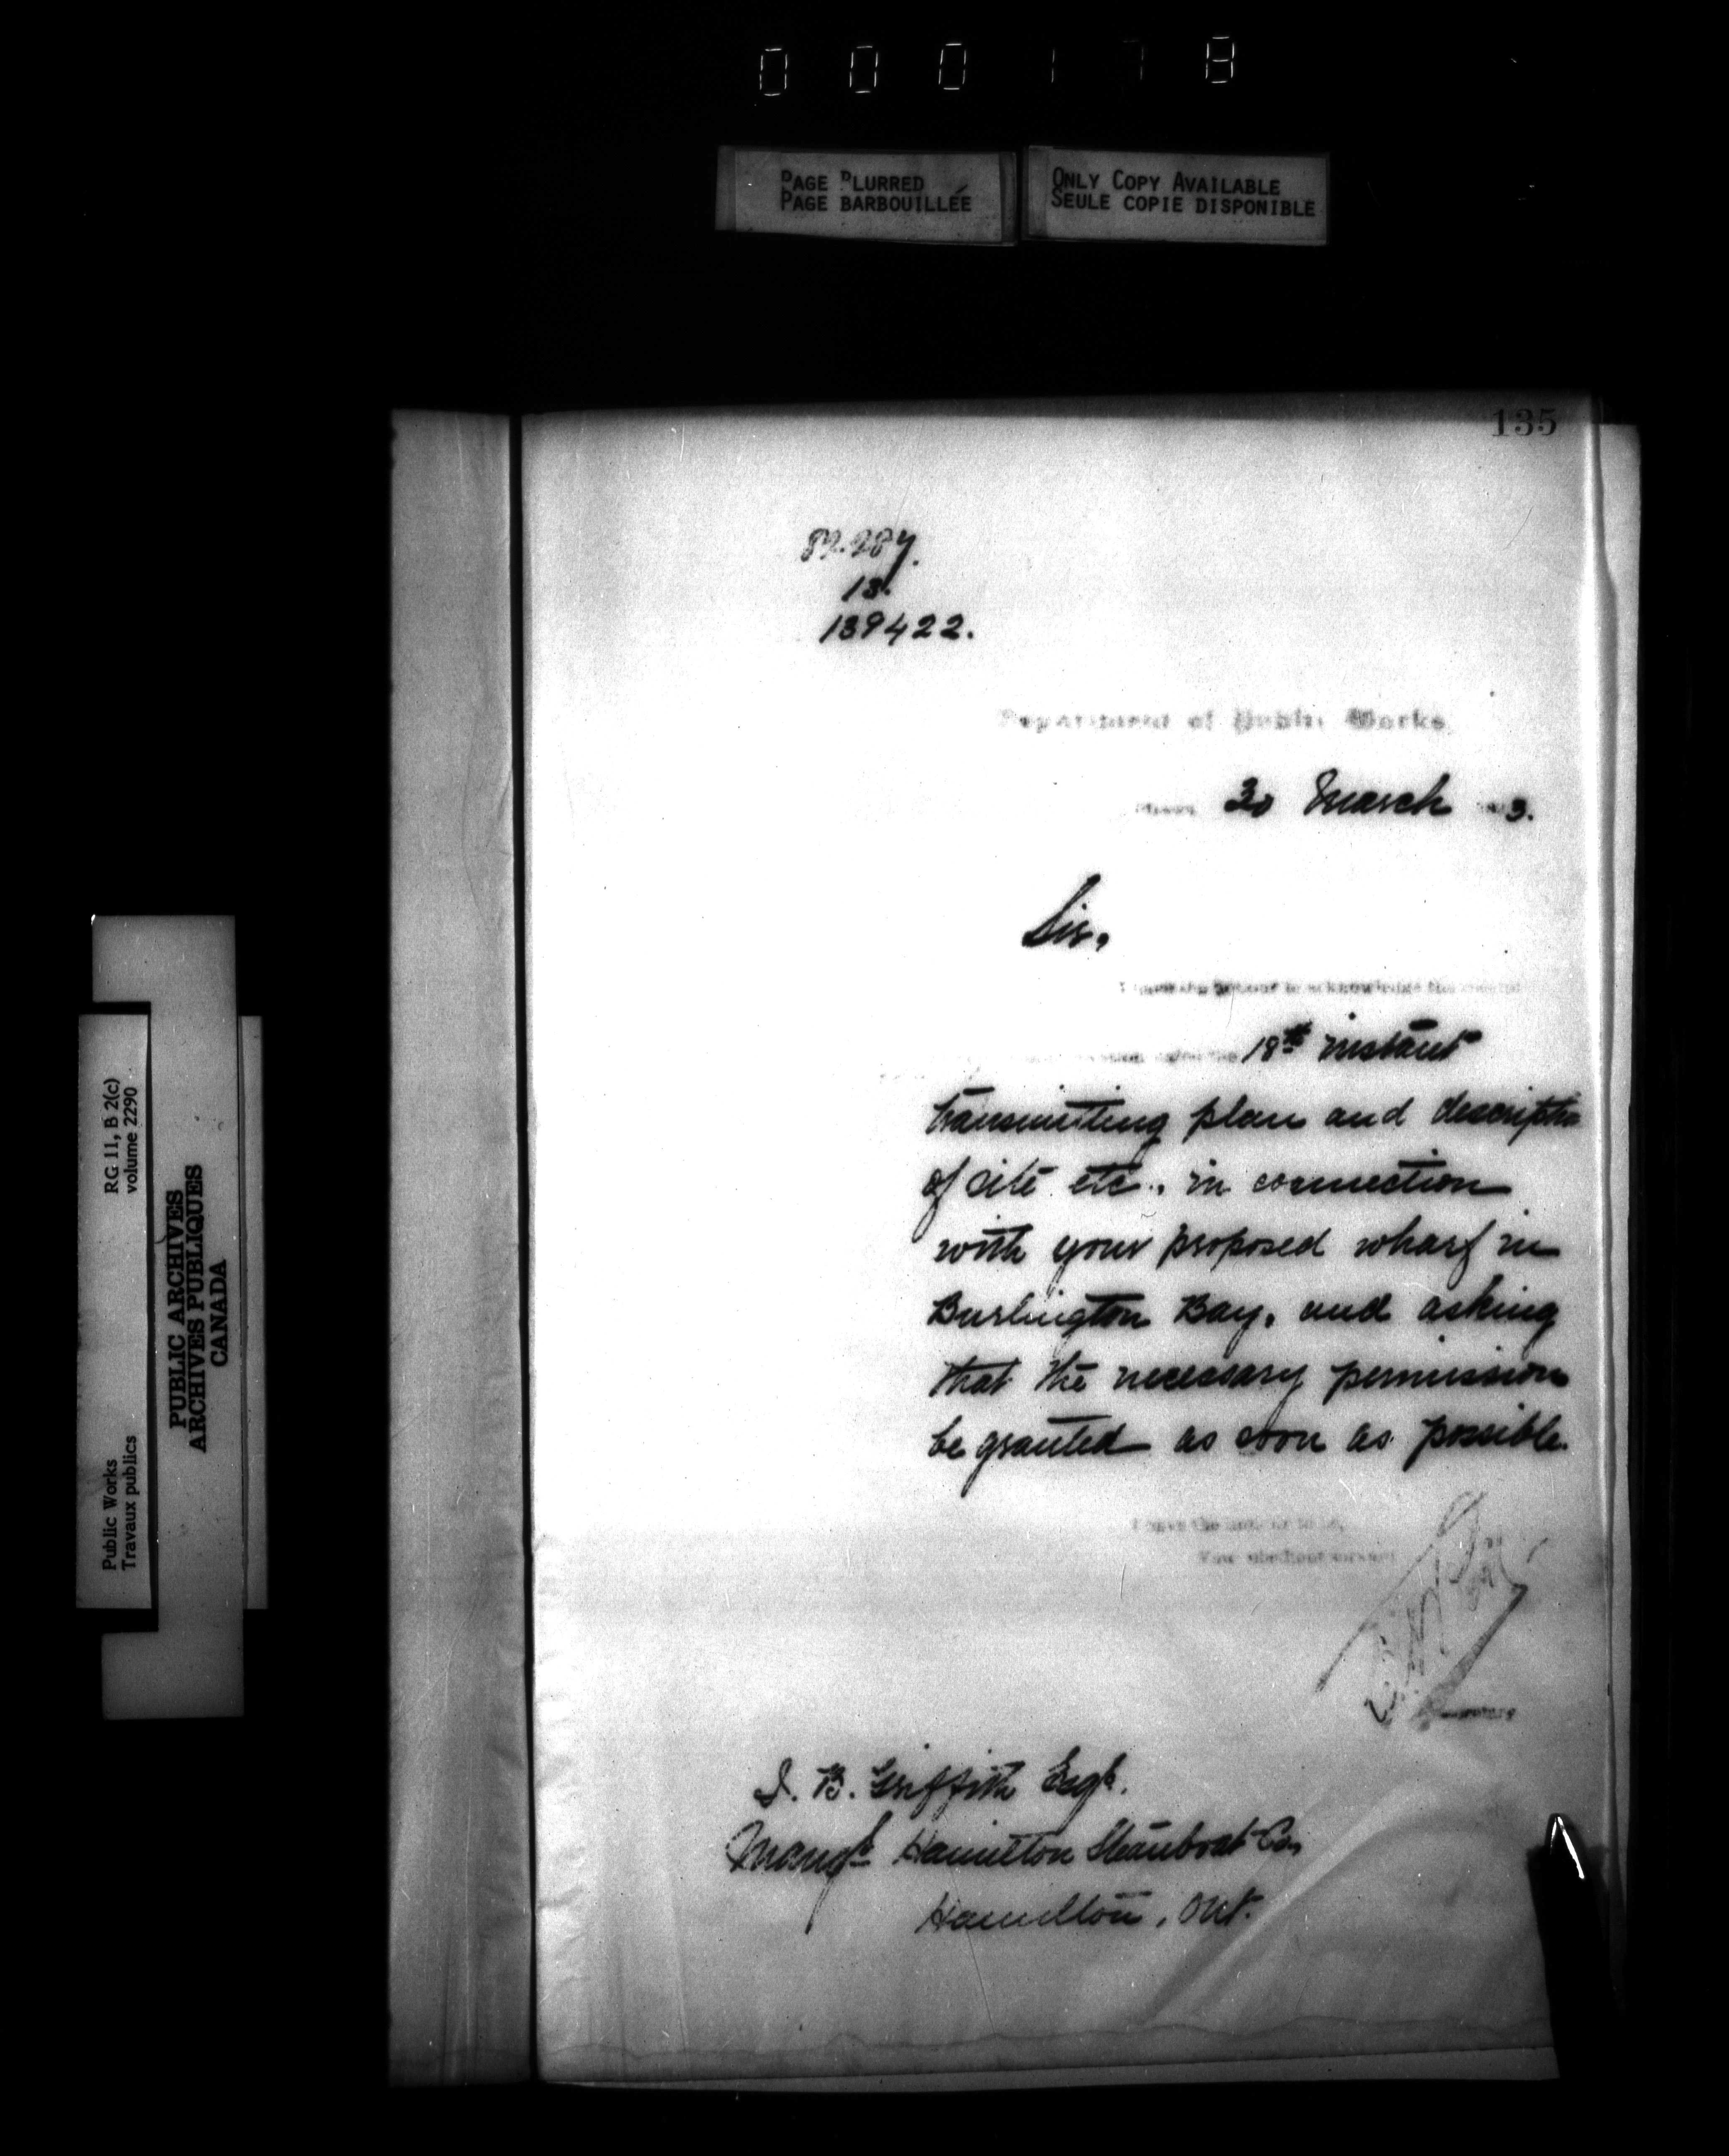 000178
PAGE BLURRED
PAGE BARBOUILLÉE
ONLY COPY AVAILABLE
SEULE COPIE DISPONIBLE
135
13.
139422.
Department of Public Works
30 March 3.
Sir,
I have the honour to acknowledge the receipt
18th instant
transmitting plan and descriptio
of site etc., in connection
with your proposed wharf in
Burlington Bay, and asking
that the necessary permission
be granted as soon as possible.
I have the honour to be,
Your obedient servant
Secretary
I. B. Griffith Esqr.
Mangr Hamilton Steamboat Co,
Hamilton, Ont.
RG 11, B 2(c)
volume 2290
Public Works
Travaux publics
PUBLIC ARCHIVES
ARCHIVES PUBLIQUES
CANADA